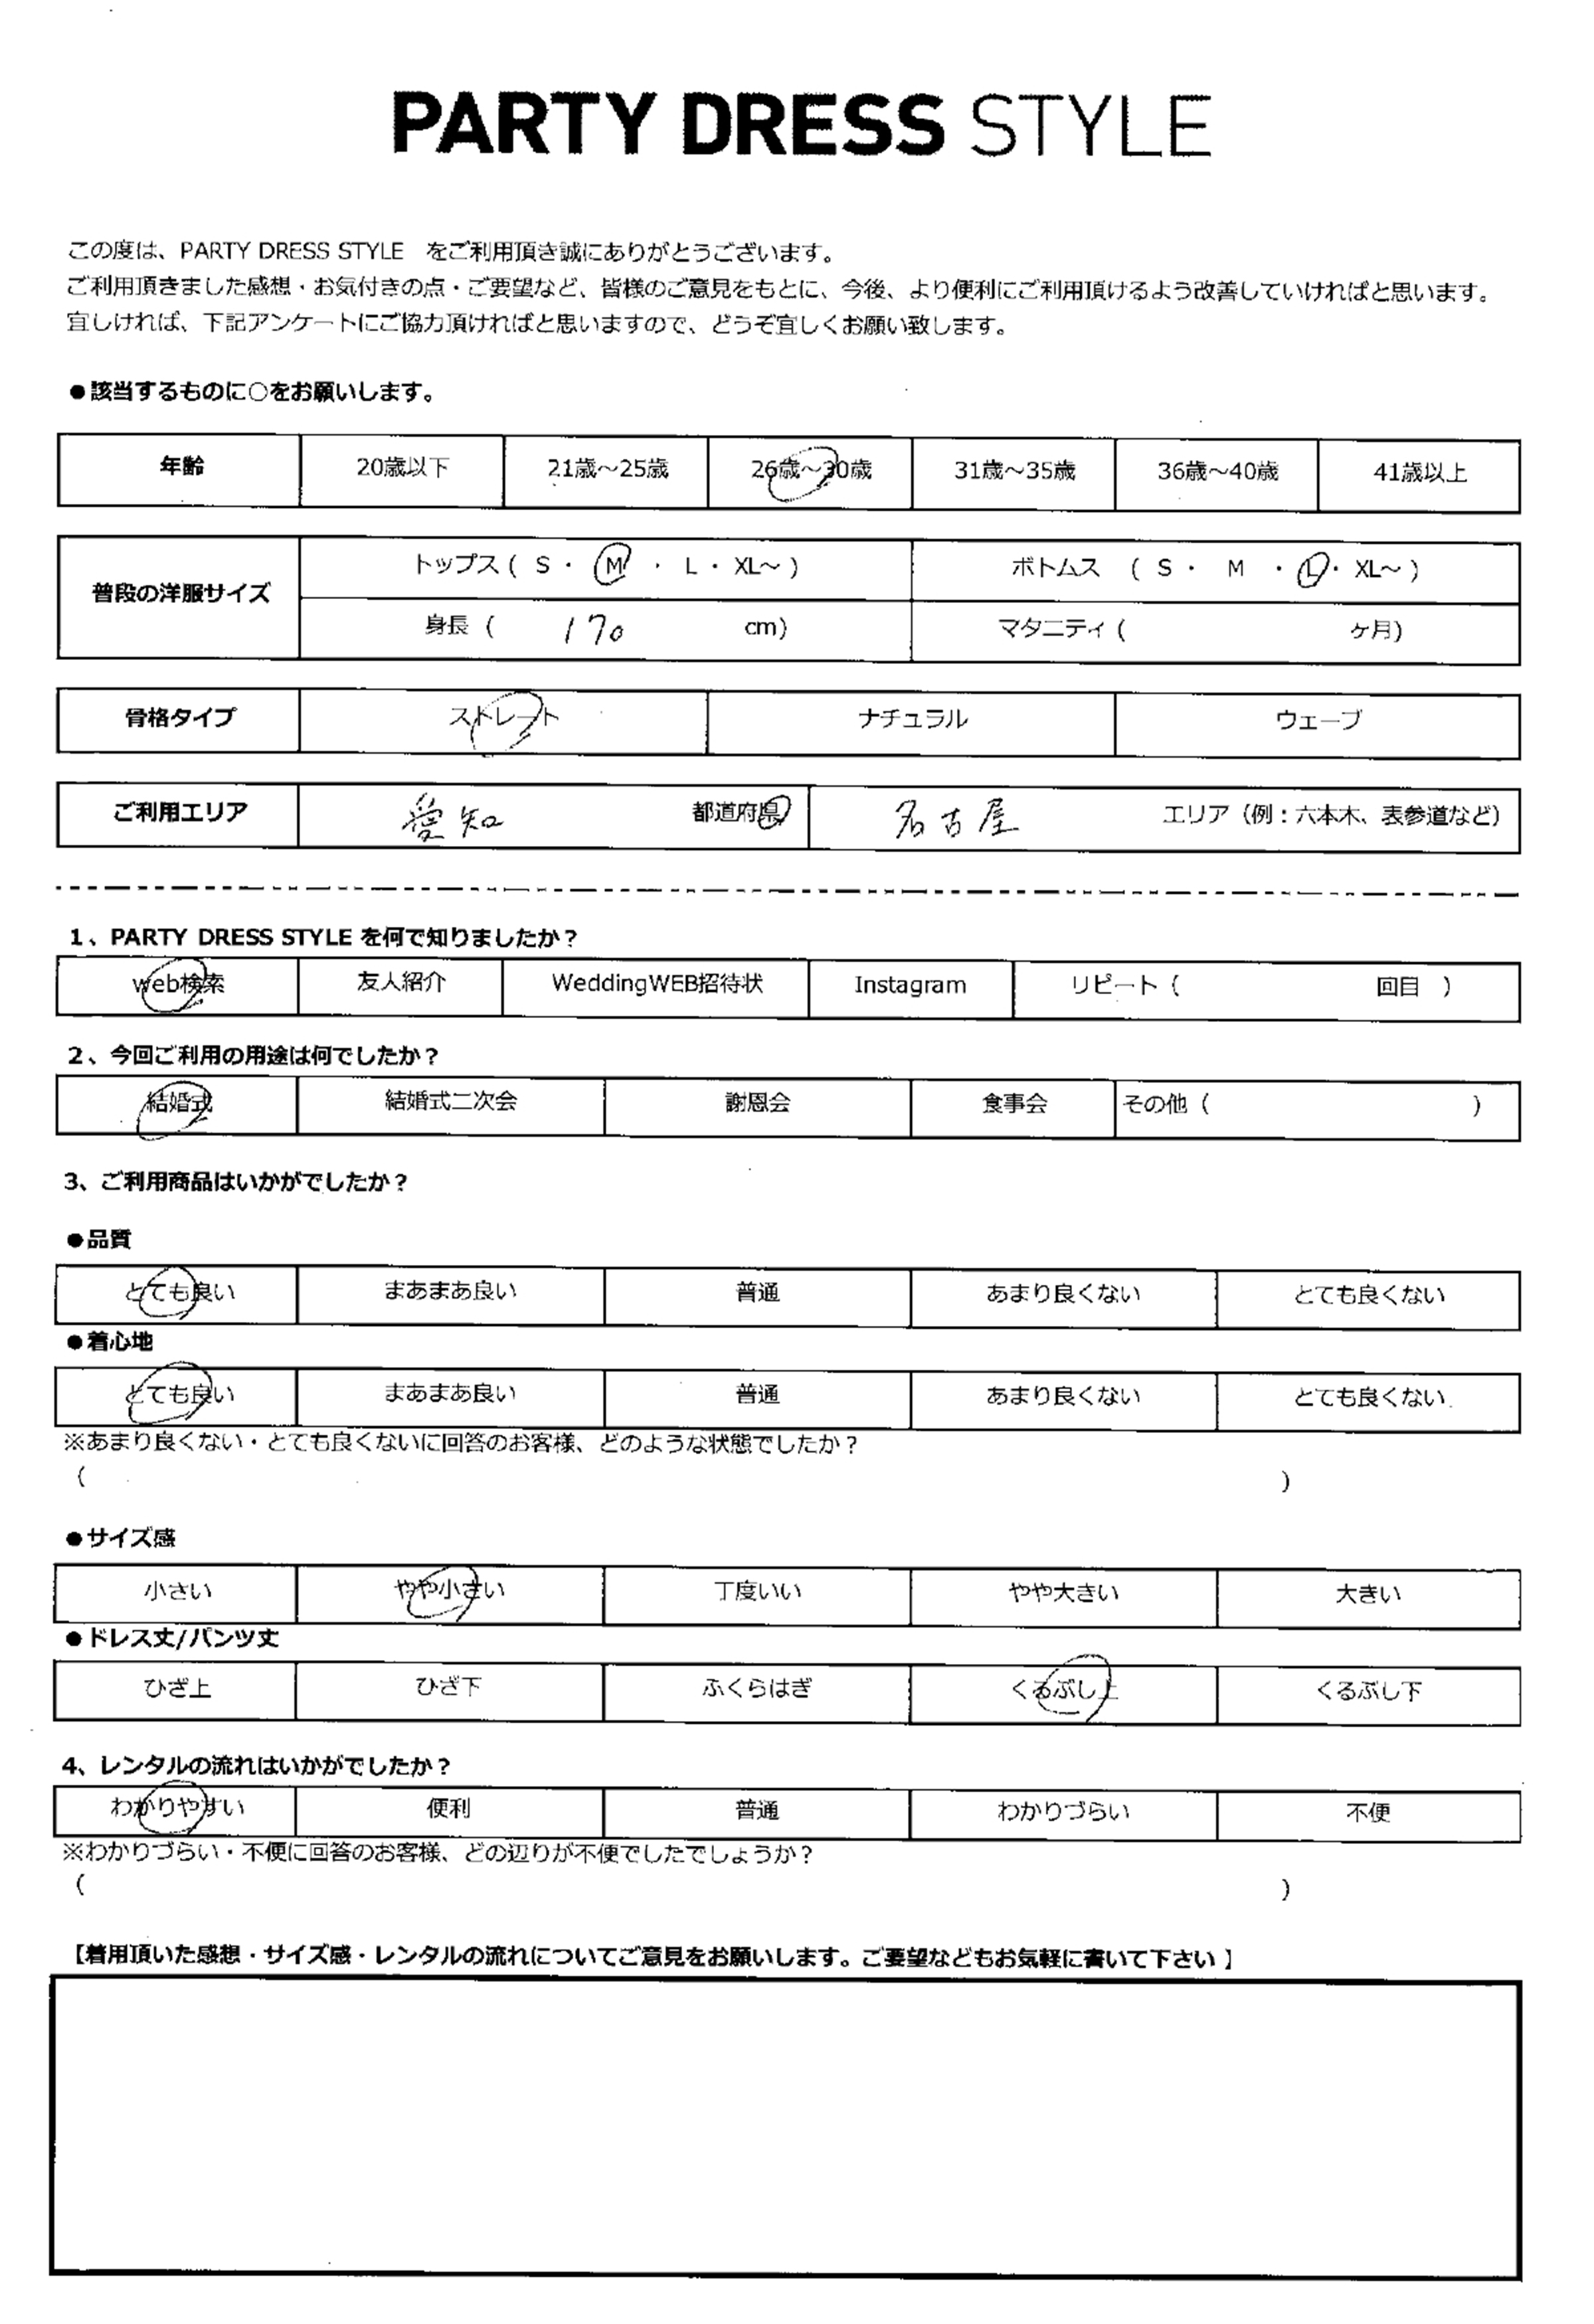 PARTY DRESS STYLE
この度は、PARTY DRESS STYLE をご利用頂き誠にありがとうございます。
ご利用頂きました感想・お気付きの点・ご要望など、皆様のご意見をもとに、今後、より便利にご利用頂けるよう改善していければと思います。
宜しければ、下記アンケートにご協力頂ければと思いますので、どうぞ宜しくお願い致します。
●該当するものに○をお願いします。
年齢 20歳以下 21歳～25歳 26歳～30歳 31歳～35歳 36歳～40歳 41歳以上
普段の洋服サイズ
トップス ( S ・ M ・ L ・ XL～ ) ボトムス ( S ・ M ・ L ・ XL～ )
身長 ( 170 cm) マタニティ ( ヶ月)
骨格タイプ ストレート ナチュラル ウェーブ
ご利用エリア 愛知 都道府県 名古屋 エリア（例：六本木、表参道など）
1、PARTY DRESS STYLE を何で知りましたか？
web検索 友人紹介 WeddingWEB招待状 Instagram リピート ( 回目 )
2、今回ご利用の用途は何でしたか？
結婚式 結婚式二次会 謝恩会 食事会 その他 ( )
3、ご利用商品はいかがでしたか？
●品質
とても良い まあまあ良い 普通 あまり良くない とても良くない
●着心地
とても良い まあまあ良い 普通 あまり良くない とても良くない
※あまり良くない・とても良くないに回答のお客様、どのような状態でしたか？
( )
●サイズ感
小さい やや小さい 丁度いい やや大きい 大きい
●ドレス丈/パンツ丈
ひざ上 ひざ下 ふくらはぎ くるぶし上 くるぶし下
4、レンタルの流れはいかがでしたか？
わかりやすい 便利 普通 わかりづらい 不便
※わかりづらい・不便に回答のお客様、どの辺りが不便でしたでしょうか？
( )
【着用頂いた感想・サイズ感・レンタルの流れについてご意見をお願いします。ご要望などもお気軽に書いて下さい】